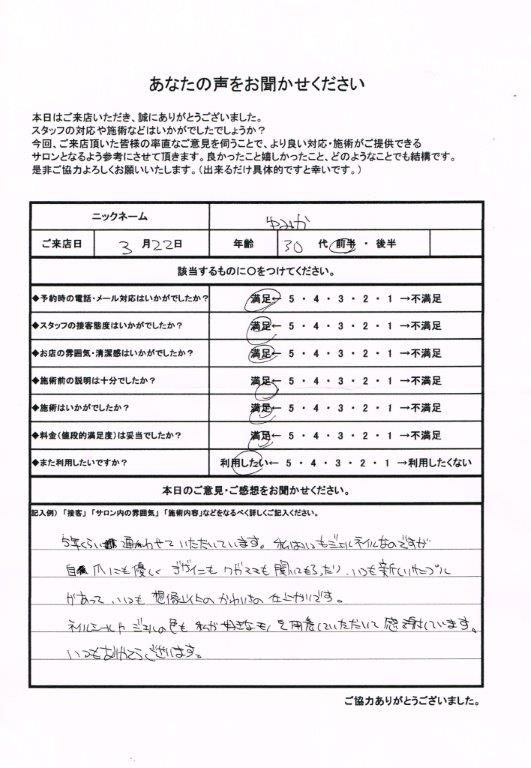 あなたの声をお聞かせください
本日はご来店いただき、誠にありがとうございました。
スタッフの対応や施術などはいかがでしたでしょうか?
今回、ご来店頂いた皆様の率直なご意見を伺うことで、より良い対応・施術がご提供できる
サロンとなるよう参考にさせて頂きます。良かったこと嬉しかったこと、どのようなことでも結構です。
是非ご協力よろしくお願いいたします。(出来るだけ具体的ですと幸いです。)
ニックネーム ゆみか
ご来店日 3 月 22 日 年齢 30 代 前半 ・ 後半
該当するものに〇をつけてください。
◆予約時の電話・メール対応はいかがでしたか? 満足← 5 ・ 4 ・ 3 ・ 2 ・ 1 →不満足
◆スタッフの接客態度はいかがでしたか? 満足← 5 ・ 4 ・ 3 ・ 2 ・ 1 →不満足
◆お店の雰囲気・清潔感はいかがでしたか? 満足← 5 ・ 4 ・ 3 ・ 2 ・ 1 →不満足
◆施術前の説明は十分でしたか? 満足← 5 ・ 4 ・ 3 ・ 2 ・ 1 →不満足
◆施術はいかがでしたか? 満足← 5 ・ 4 ・ 3 ・ 2 ・ 1 →不満足
◆料金(値段的満足度)は妥当でしたか? 満足← 5 ・ 4 ・ 3 ・ 2 ・ 1 →不満足
◆また利用したいですか? 利用したい← 5 ・ 4 ・ 3 ・ 2 ・ 1 →利用したくない
本日のご意見・ご感想をお聞かせください。
記入例) 「接客」 「サロン内の雰囲気」 「施術内容」などをなるべく詳しくご記入ください。
5年くらい 通わせていただいています。私はいつもジェルネイルなのですが
自 爪にも優しく デザインも ワガママも 聞いてもらったり、いつも新しいサンプル
があって、いつも 想像以上の かわいさの 仕上がりです。
ネイルシールや ジェルの色も 私が好きなモノを用意していただいて 感謝しています。
いつもありがとうございます。
ご協力ありがとうございました。